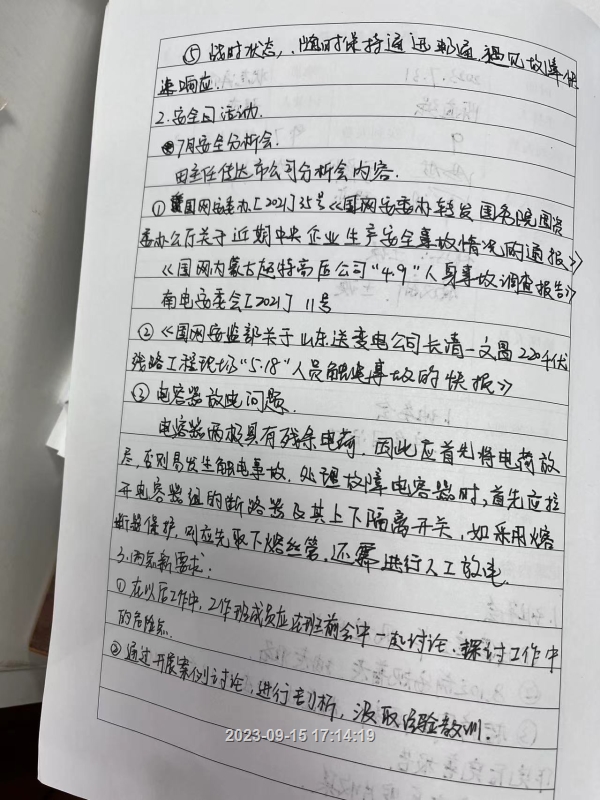 ⑤ 战时状态，随时保持通迅畅通，遇见故障快
速响应.
2.安全日活动.
7月安全分析会.
由主任传达市公司分析会内容.
① 国网安委办[2021]35号《国网安委办转发国务院国资
委办公厅关于近期中央企业生产安全事故情况的通报》
《国网内蒙古超特高压公司"4.9"人身事故调查报告》
南电安委会[2021] 11号
② 《国网安监部关于山东送变电公司长清一文昌220千伏
线路工程现场"5.18"人员触电事故的快报》
③ 电容器放电问题.
电容器两极具有残余电荷，因此应首先将电荷放
尽，否则易发生触电事故.处理故障电容器时，首先应拉
开电容器组的断路器及其上下隔离开关，如采用熔
断器保护，则应先取下熔丝管.还需进行人工放电.
3.新要求.
① 在以后工作中，工作班成员应在班前会中一起讨论、探讨工作中
的危险点.
② 通过开展案例讨论，进行剖析，汲取经验教训.
2023-09-15 17:14:19